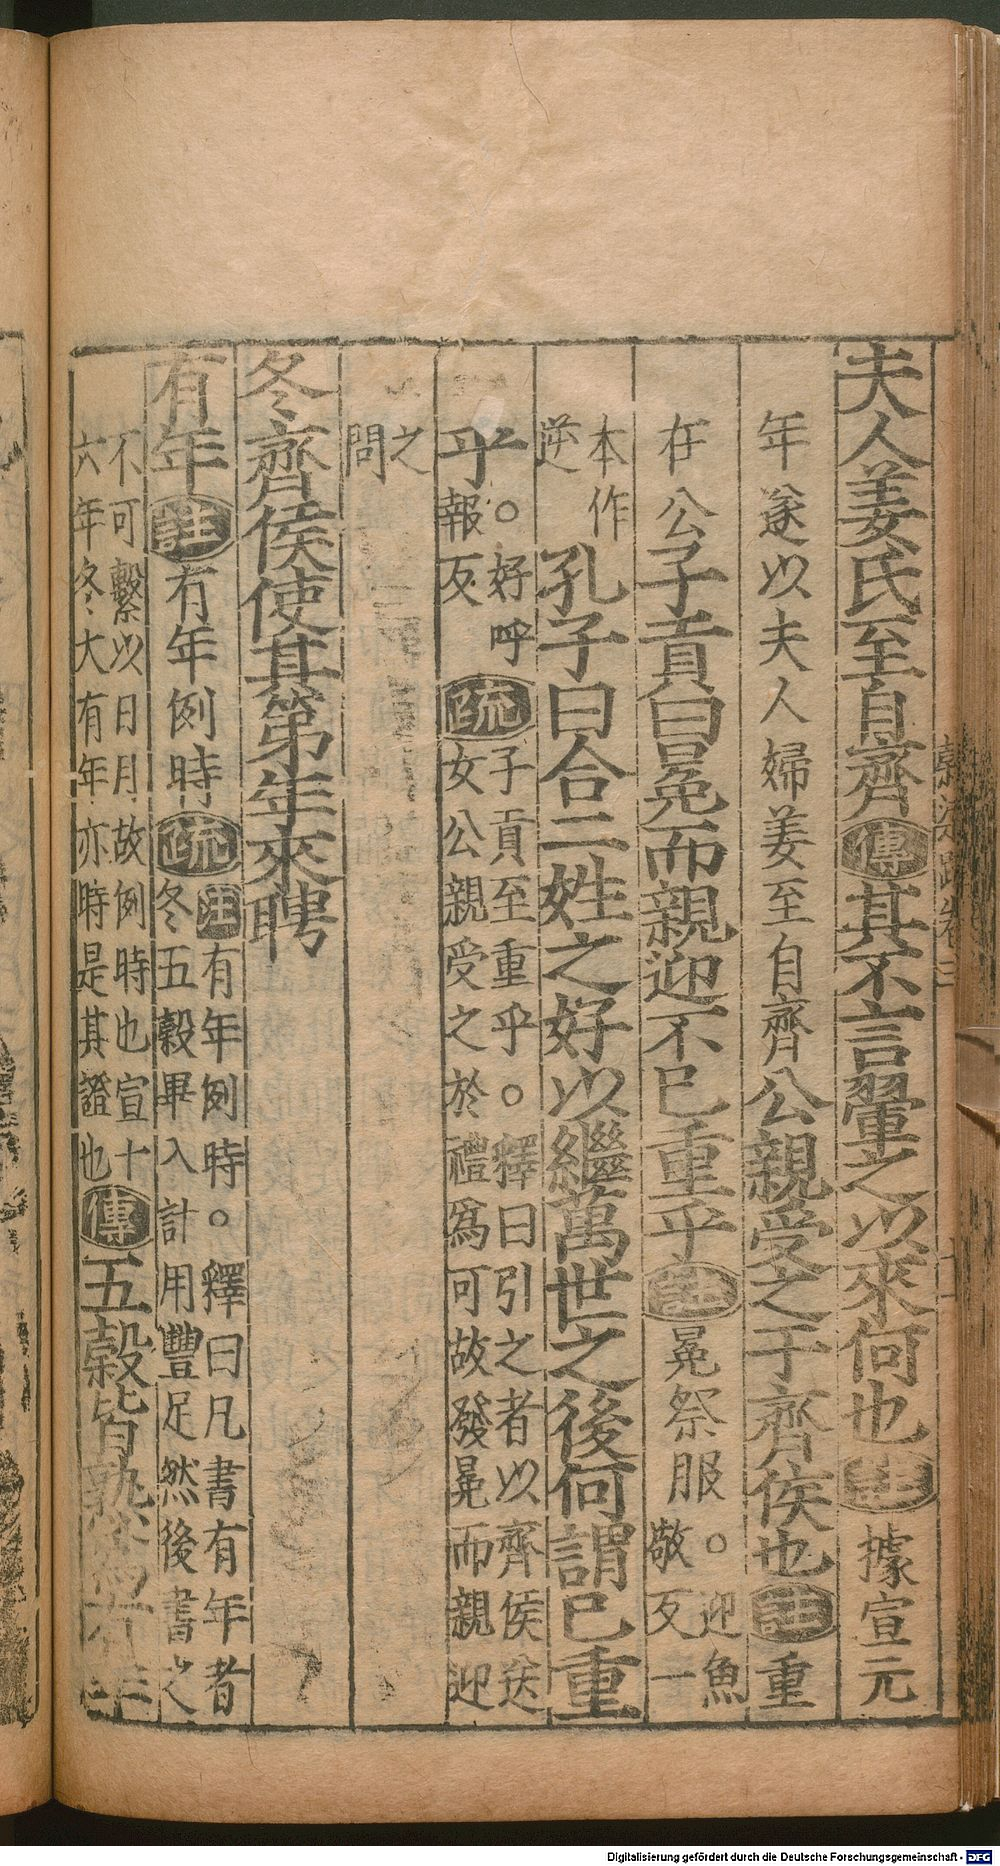 夫人姜氏至自齊傳其不言翬之以來何也註據宣元
年遂以夫人婦姜至自齊公親受之于齊侯也註重
在公子貢曰冕而親迎不已重乎註冕祭服。迎魚
敬反一
本作
逆孔子曰合二姓之好以繼萬世之後何謂已重
乎。好呼
報反疏子貢至重乎。釋曰引之者以齊侯送
女公親受之於禮爲可故發冕而親迎
之
問
冬齊侯使其弟年來聘
有年註有年例時疏注有年例時。釋曰凡書有年者
冬五穀畢入計用豐足然後書之
不可繫以日月故例時也宣十
六年冬大有年亦時是其證也傳五穀皆熟爲有年
Digitalisierung gefördert durch die Deutsche Forschungsgemeinschaft - DFG